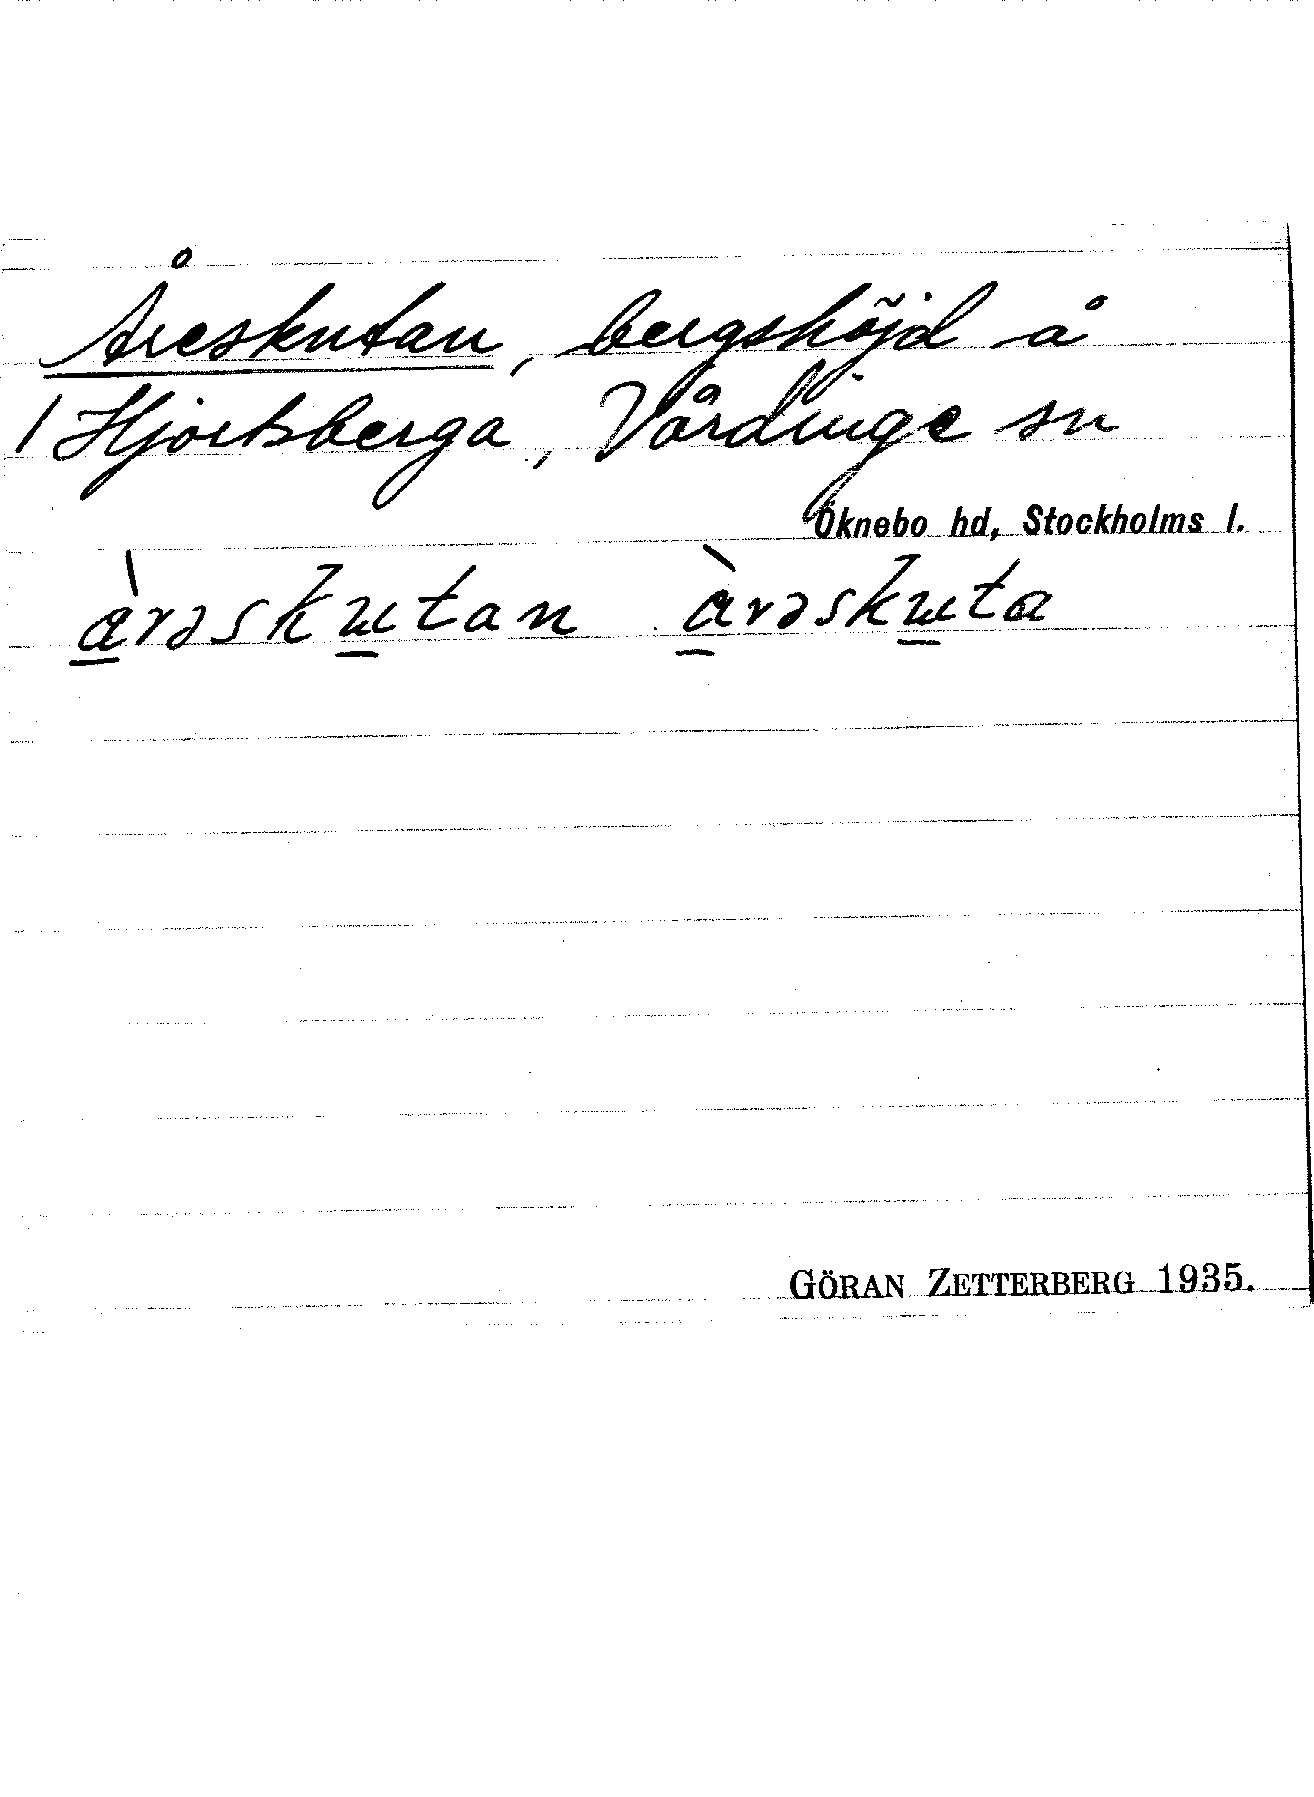 Åreskutan, bergshöjd å
/ Hjortsberga, Vårdinge sn
Öknebo hd, Stockholms l.
àrəskutan àrəskuta
GÖRAN ZETTERBERG 1935.